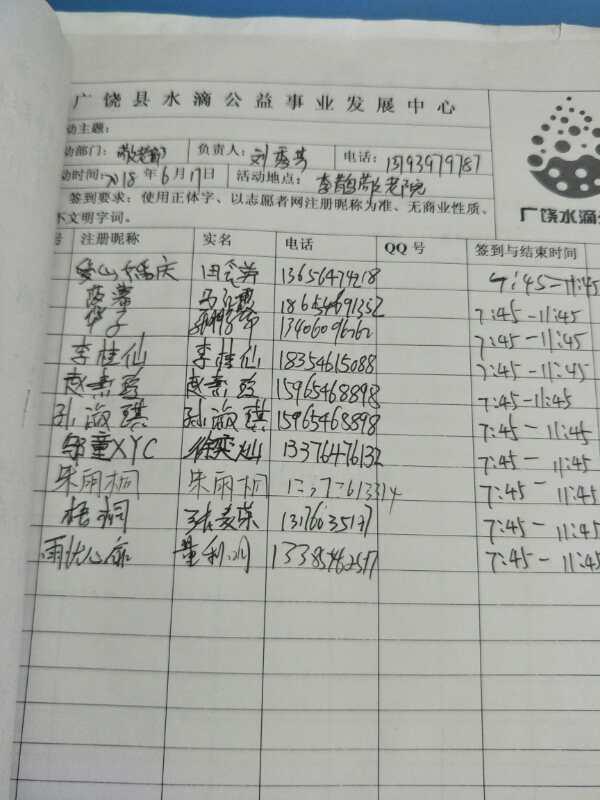 广饶县水滴公益事业发展中心
动主题:
动部门: 敬老部 负责人: 刘秀芳 电话: 15193979787
动时间: 2018年6月17日 活动地点:
签到要求:使用正体字、以志愿者网注册昵称为准、无商业性质、
不文明字词。
号 注册昵称 实名 电话 QQ号 签到与结束时间
13656474218 7:45-11:45
18654691352 7:45-11:45
华子 13406096262 7:45-11:45
李桂仙 李桂仙 18354615088 7:45-11:45
15965468898 7:45-11:45
孙淑琪 孙淑琪 15965468898 7:45-11:45
XYC 徐奕灿 13376476132 7:45-11:45
朱雨桐 朱雨桐 7:45-11:45
梧桐 13176035177 7:45-11:45
7:45-11:45
广饶水滴